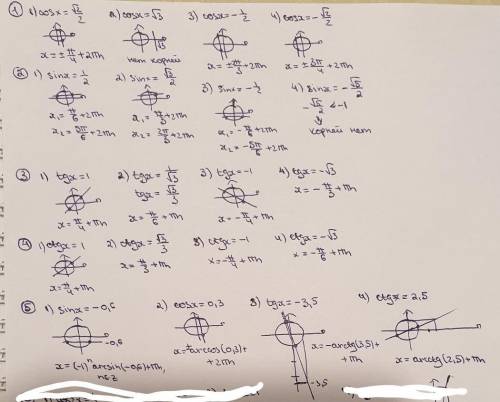 ① 1) cosx = √2/2 2) cosx = √3 3) cosx = -1/2 4) cosx = -√2/2
x = ±π/4 + 2πn нет корней x = ±π/3 + πn x = ±3π/4 + 2πn
② 1) sinx = 1/2 2) sinx = √3/2 3) sinx = -1/2 4) sinx = -√5/2
-√5/2 < -1
x₁ = π/6 + 2πn x₁ = π/3 + 2πn x₁ = -π/6 + 2πn корней нет
x₂ = 5π/6 + 2πn x₂ = 2π/3 + 2πn x₂ = -5π/6 + 2πn
③ 1) tgx = 1 2) tgx = 1/√3 3) tgx = -1 4) tgx = -√3
tgx = √3/3 x = -π/3 + πn
x = π/4 + πn x = π/6 + πn x = -π/4 + πn
④ 1) ctgx = 1 2) ctgx = √3/3 3) ctgx = -1 4) ctgx = -√3
x = π/4 + πn x = π/3 + πn x = -π/4 + πn x = -π/6 + πn
⑤ 1) sinx = -0,6 2) cosx = 0,3 3) tgx = -3,5 4) ctgx = 2,5
-0,6
x = ±arccos(0,3) + x = -arctg(3,5) +
+ 2πn + πn
x = (-1)ⁿ arcsin(-0,6) + πn, x = arcctg(2,5) + πn
n∈Z -3,5